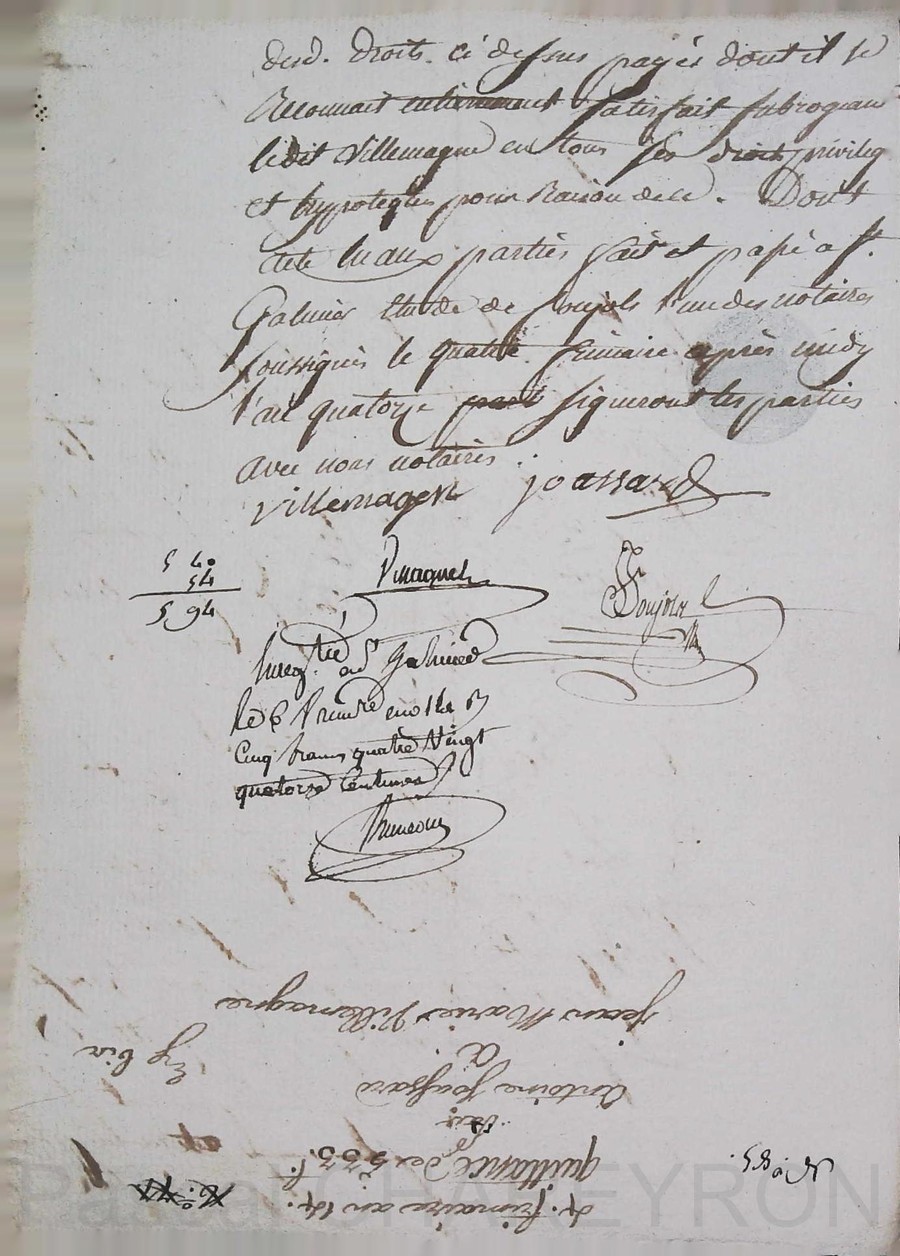 desd. droits ci dessus payés dont il se
Reconnait entierement satisfait subrogeant
ledit Villemagne en tous ses droits privileg
et hypoteques pour Raison de ce. Dont
acte lu aux parties fait et passé a St.
Galmier Etude de Soujols l'un des notaires
soussignés le quatre frimaire après midy
l'an quatorze signeront les parties
avec nous notaires.
Villemagne joassard
5 40
54
5 94
Soujols
Enregtré a St Galmier
le 6 frimre an 14
Cinq francs quatre Vingt
quatorze Centimes
4. frimaire an 14.
quittance de 533. f.
Antoine Joassard
a
Jean Marie Villemagne
Pascal CHAREYRON